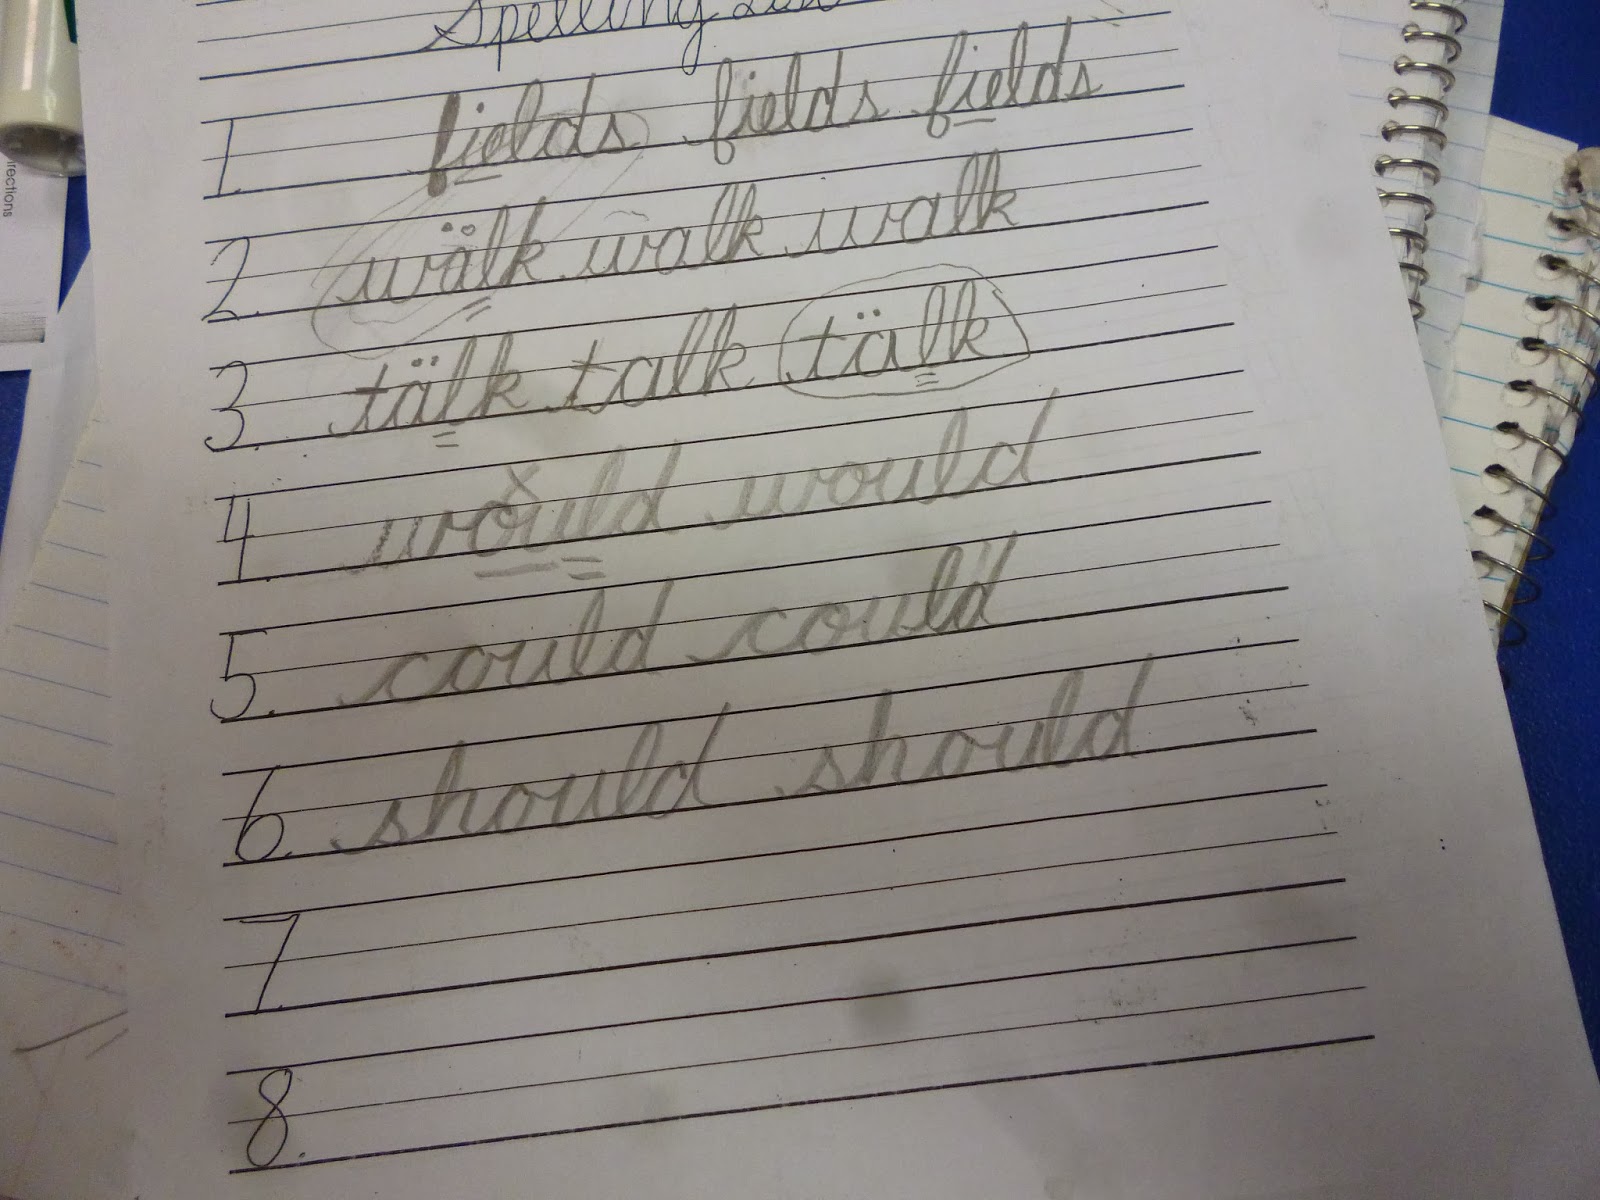 Spelling List
1. fields fields fields
2. wälk walk walk
3. tälk talk tälk
4. wǒuld would
5. could could
6. should should
7.
8.
rections